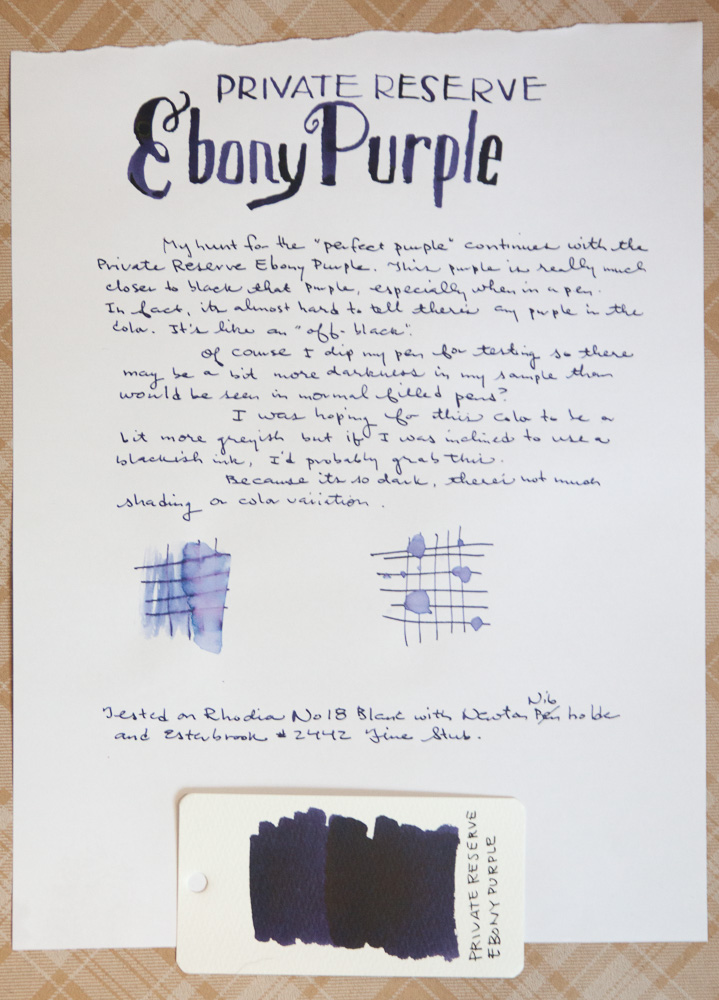 PRIVATE RESERVE
Ebony Purple
My hunt for the "perfect purple" continues with the
Private Reserve Ebony Purple. This purple is really much
closer to black that purple, especially when in a pen.
In fact, its almost hard to tell there's any purple in the
color. It's like an "off-black".
Of course I dip my pen for testing so there
may be a bit more darkness in my sample than
would be seen in normal filled pens?
I was hoping for this color to be a
bit more greyish but if I was inclined to use a
blackish ink, I'd probably grab this.
Because its so dark, there's not much
shading or color variation.
Tested on Rhodia No18 Blank with Newton Nib holder
and Esterbrook #2442 Fine Stub.
PRIVATE RESERVE
EBONY PURPLE